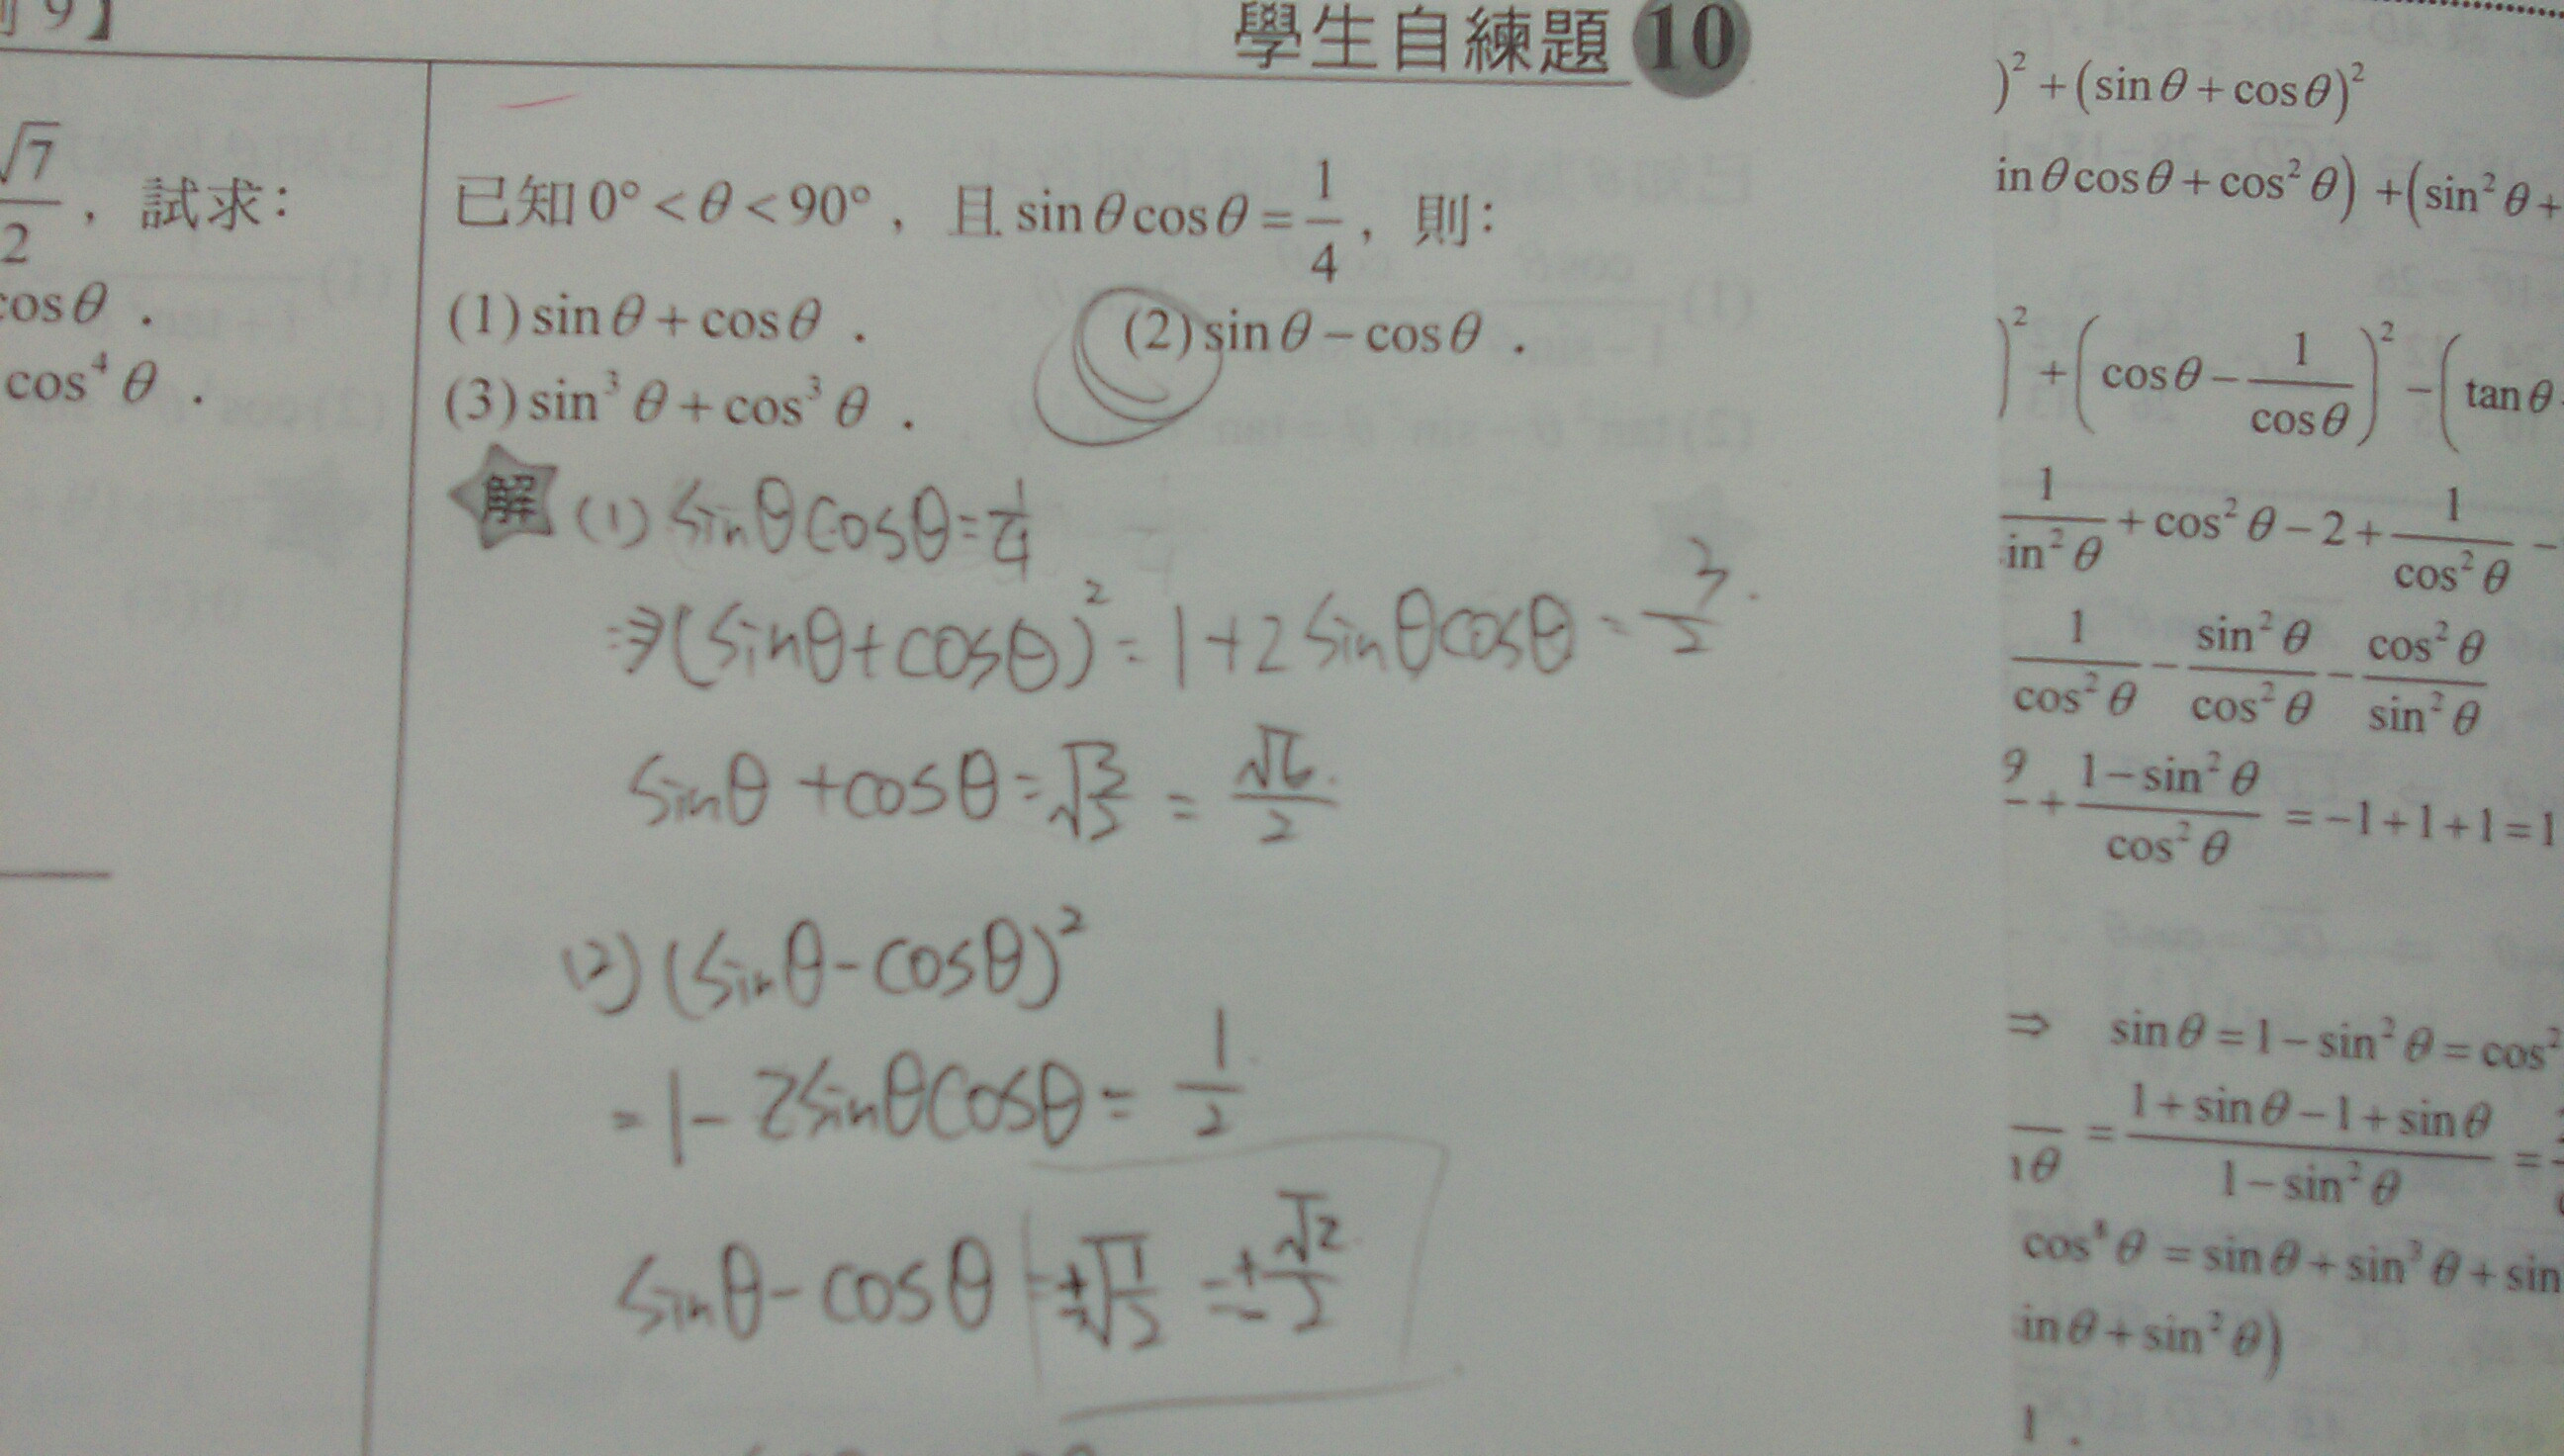 9】
學生自練題 10
√7/2 ， 試求：
cosθ .
cos⁴θ .
已知 0° < θ < 90° ， 且 sinθcosθ = 1/4 ， 則：
(1) sinθ + cosθ . (2) sinθ − cosθ .
(3) sin³θ + cos³θ .
解 (1) sinθcosθ = 1/4
⇒ (sinθ + cosθ)² = 1 + 2sinθcosθ = 3/2
sinθ + cosθ = √(3/2) = √6/2
(2) (sinθ − cosθ)²
= 1 − 2sinθcosθ = 1/2
sinθ − cosθ = ±√(1/2) = ±√2/2
)² + (sinθ + cosθ)²
inθcosθ + cos²θ) + (sin²θ +
)² + (cosθ − 1/cosθ)² − (tanθ
1/in²θ + cos²θ − 2 + 1/cos²θ −
1/cos²θ − sin²θ/cos²θ − cos²θ/sin²θ
+ (1 − sin²θ)/cos²θ = −1 + 1 + 1 = 1
⇒ sinθ = 1 − sin²θ = cos²
= (1 + sinθ − 1 + sinθ)/(1 − sin²θ) =
cos⁴θ = sinθ + sin³θ + sin
inθ + sin²θ)
1 .